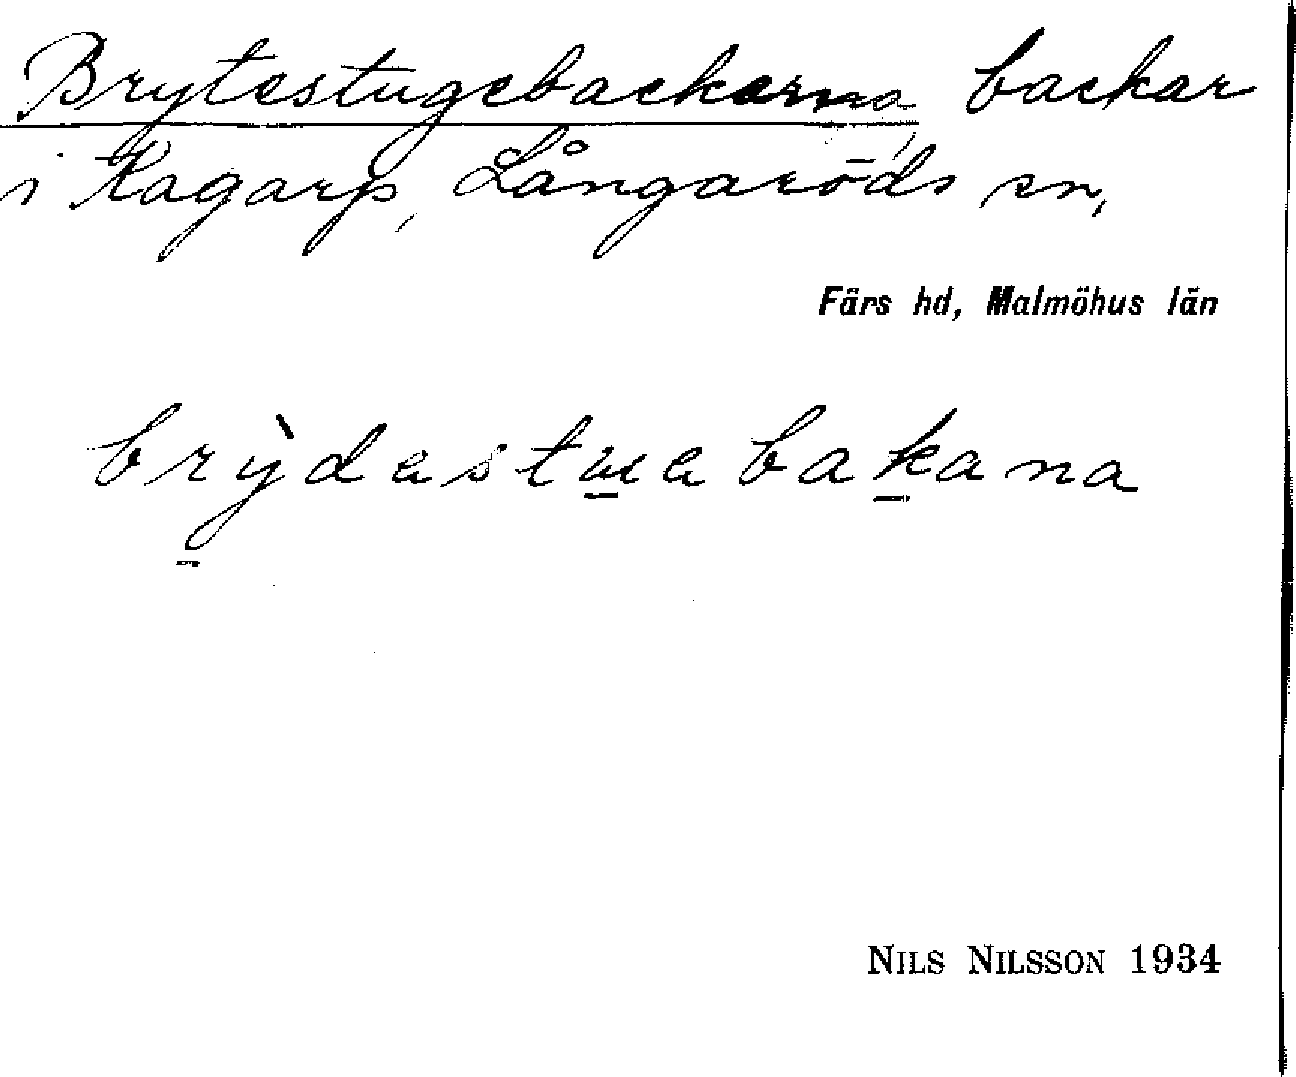 Brytestugebackarna, backar
i Kagarp, Långaröds sn,
Färs hd, Malmöhus län
brỳdastwabakana
NILS NILSSON 1934